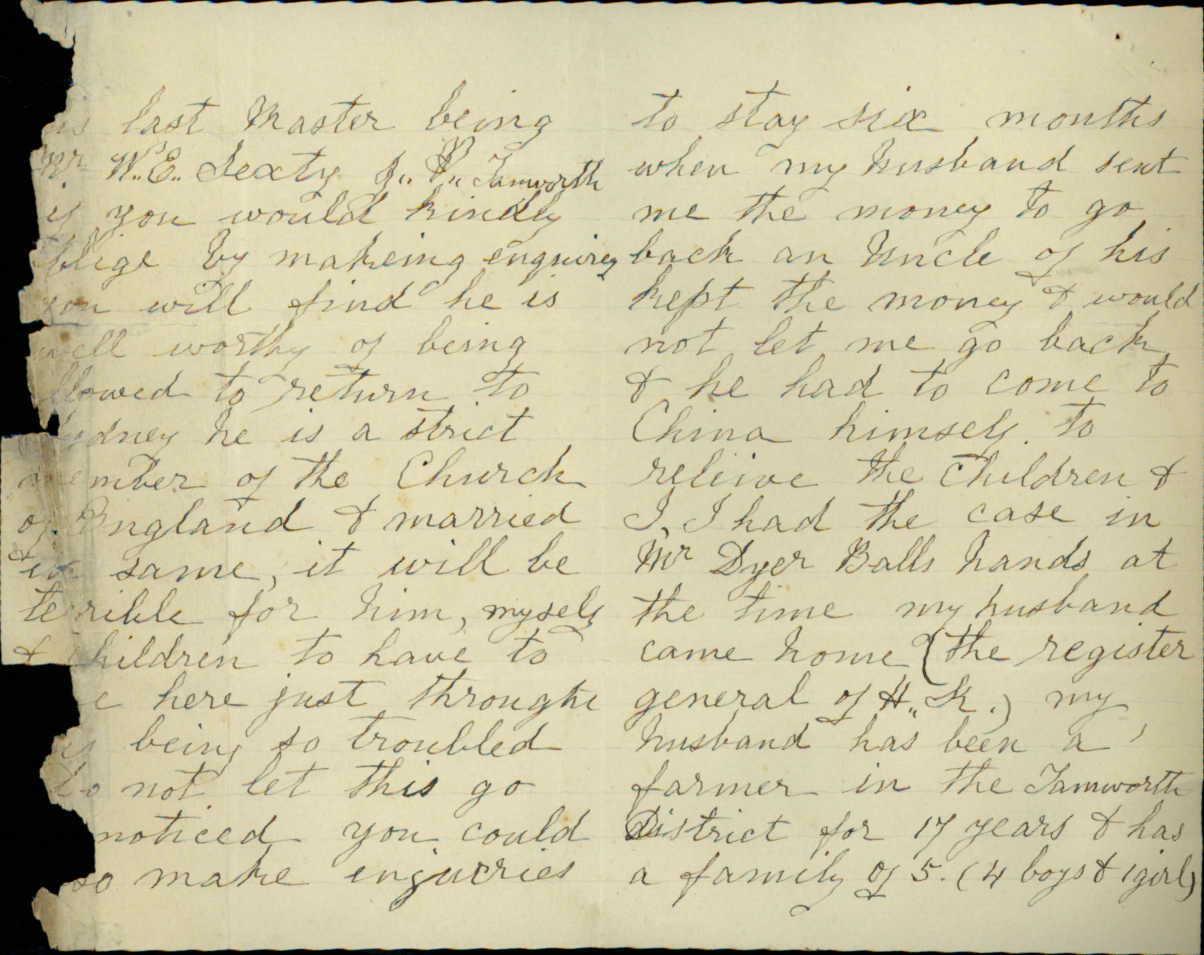 is last Master being
Mr W.E. Sexty J.. P.. Tamworth
if you would kindly
blige by makeing enquirey
you will find he is
well worthy of being
llowed to return to
ydney he is a strict
member of the Church
of England & married
in same, it will be
terrible for him, myself
& children to have to
e here just through
being so troubled
do not let this go
noticed you could
so make enjuries
to stay six months
when my husband sent
me the money to go
back an Uncle of his
kept the money & would
not let me go back
& he had to come to
China himself. to
reliive the children &
I, I had the case in
Mr Dyer Balls hands at
the time my husband
came home (the register
general of H.. K.) my
husband has been a
farmer in the Tamworth
District for 17 years & has
a family of 5. (4 boys & 1 girl)